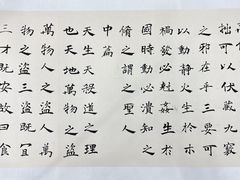 拙可以伏藏九竅
之邪在乎三要可
以動靜火生於木
禍發必尅姦生於
國時動必潰知之
脩之謂之聖人
中篇
天生天殺道之理
也天地萬物之盜
萬物人之盜人萬
物之盜三盜既宜
三才既安故曰食